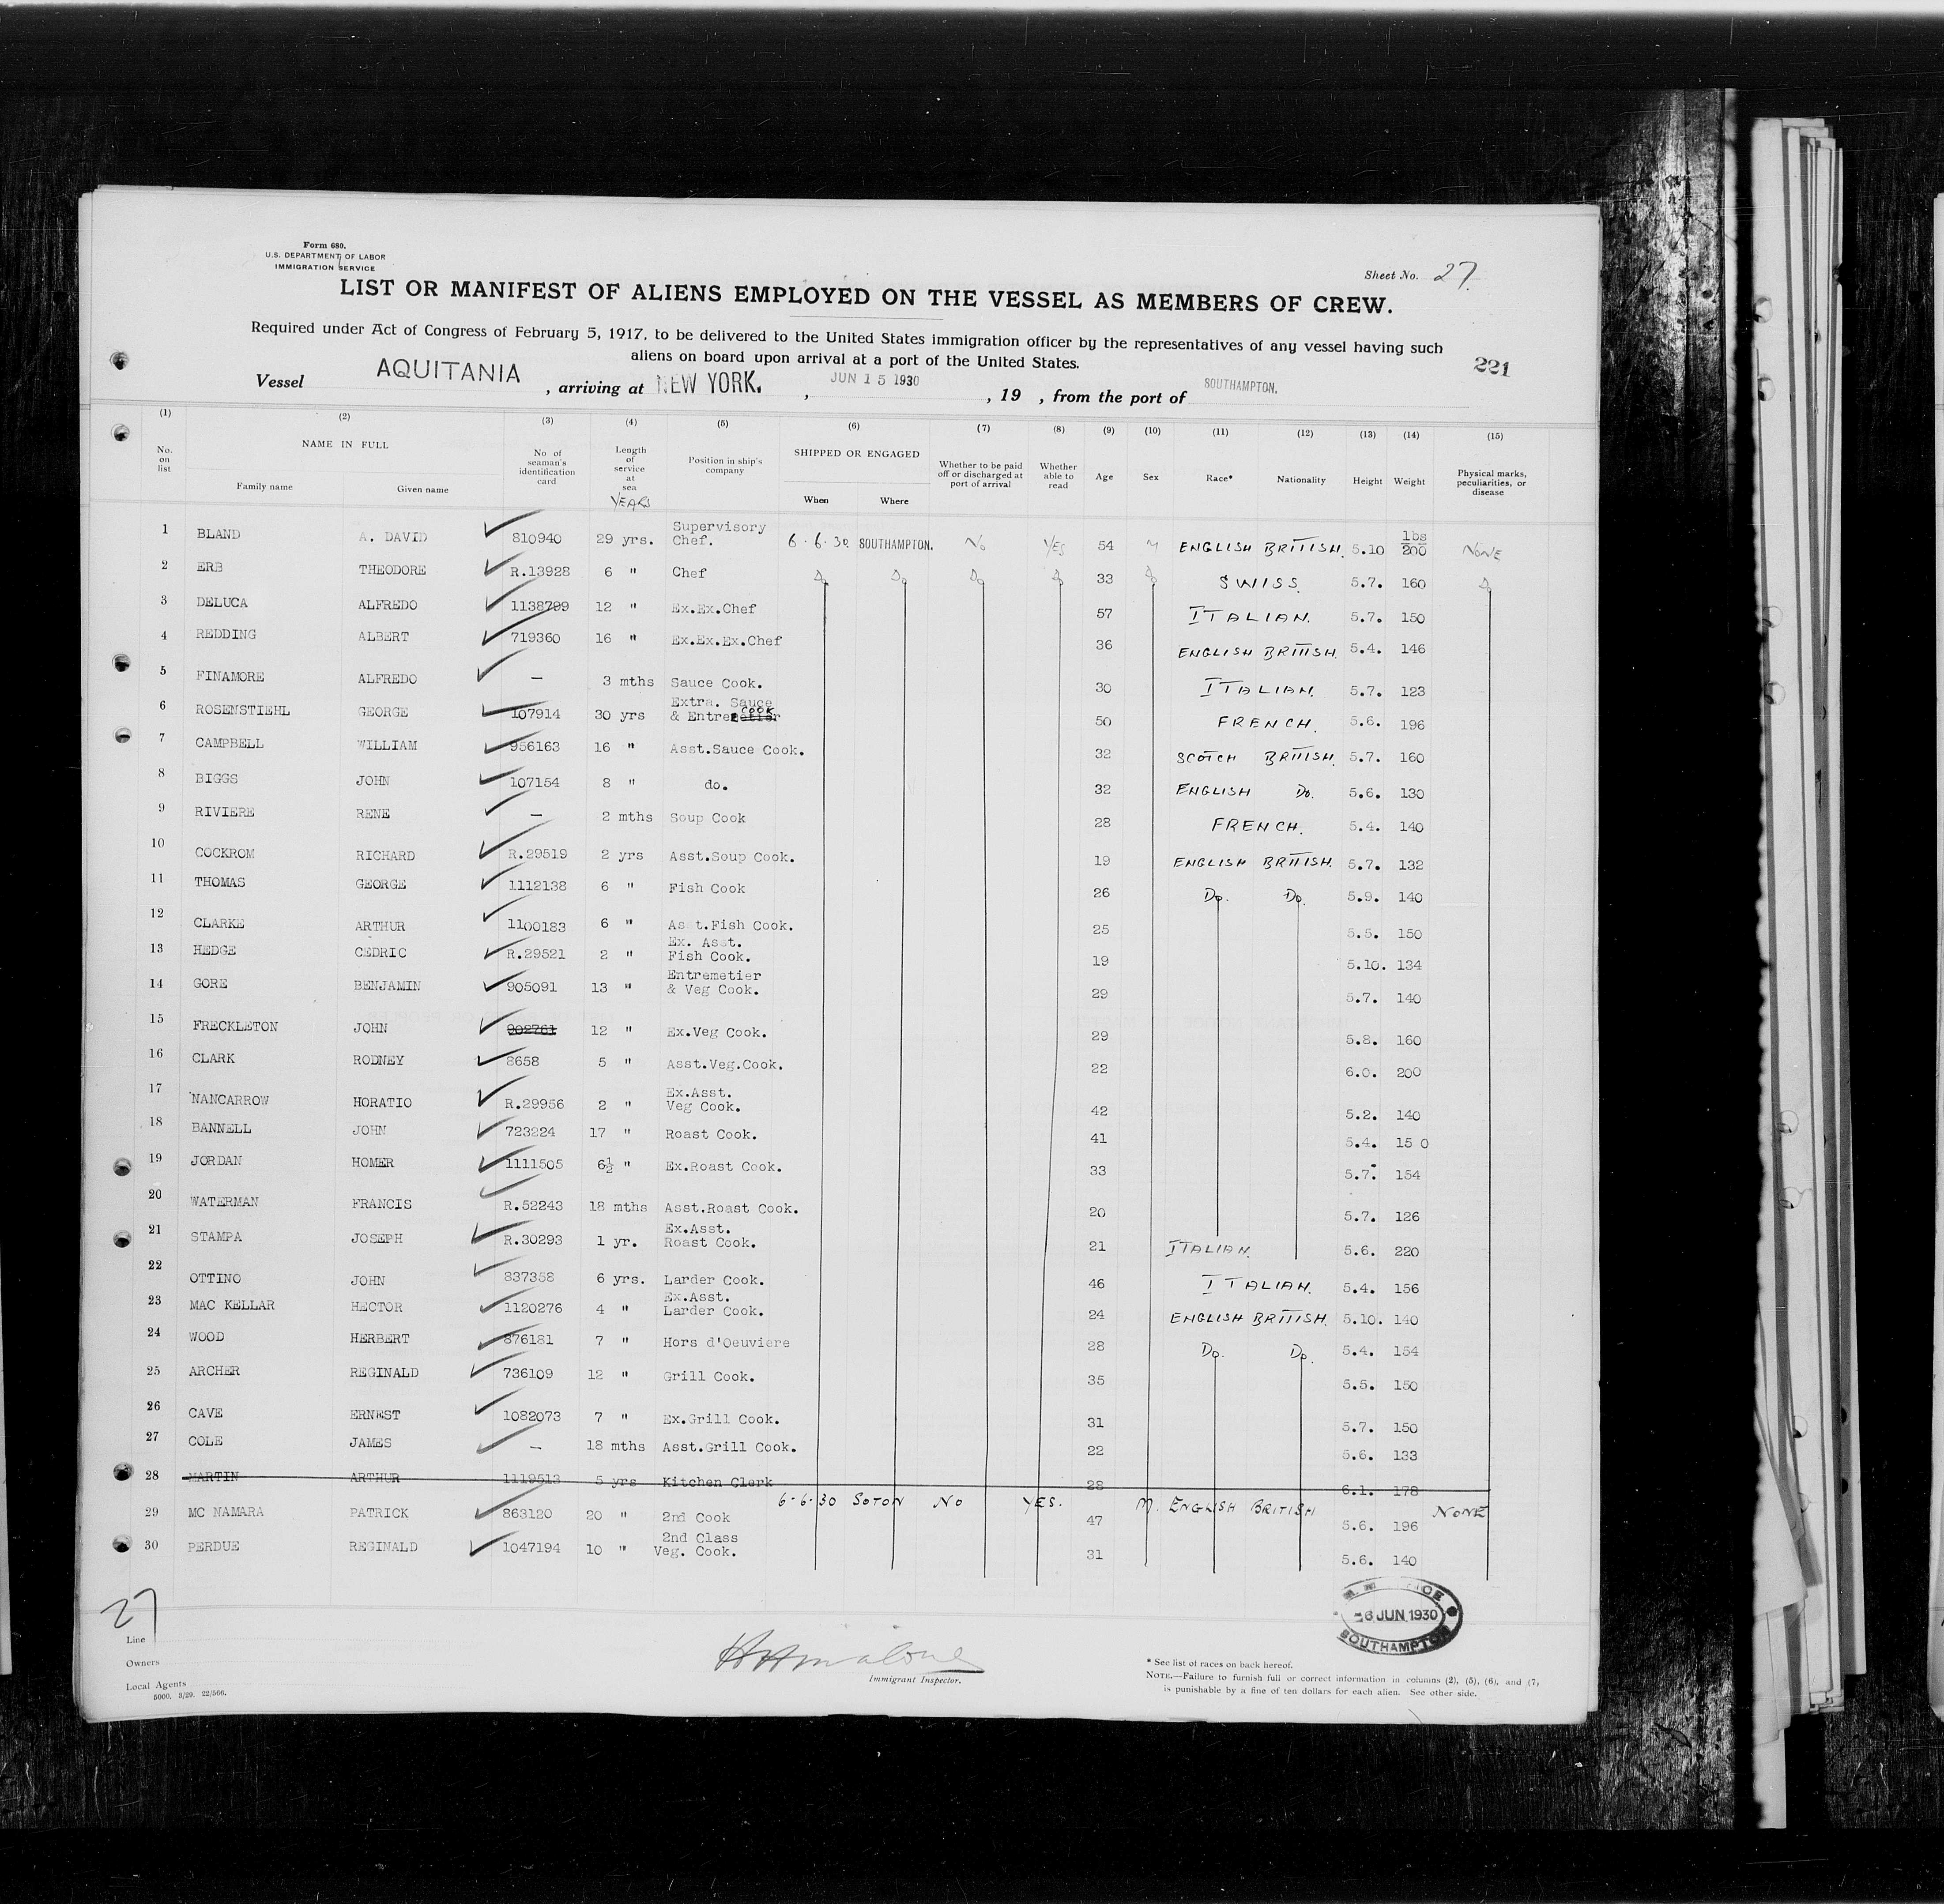 Form 680.
U.S. DEPARTMENT OF LABOR
IMMIGRATION SERVICE
Sheet No. 27.
LIST OR MANIFEST OF ALIENS EMPLOYED ON THE VESSEL AS MEMBERS OF CREW.
Required under Act of Congress of February 5, 1917, to be delivered to the United States immigration officer by the representatives of any vessel having such
aliens on board upon arrival at a port of the United States.
221
Vessel AQUITANIA , arriving at NEW YORK. , JUN 15 1930 , 19 , from the port of SOUTHAMPTON.
(1) (2) (3) (4) (5) (6) (7) (8) (9) (10) (11) (12) (13) (14) (15)
No. on list NAME IN FULL Family name Given name No of seaman's identification card Length of service at sea YEARS Position in ship's company SHIPPED OR ENGAGED When Where Whether to be paid off or discharged at port of arrival Whether able to read Age Sex Race* Nationality Height Weight Physical marks, peculiarities, or disease
1 BLAND A. DAVID 810940 29 yrs. Supervisory Chef. 6.6.30 SOUTHAMPTON. No YES 54 M ENGLISH BRITISH. 5.10 lbs 200 NONE
2 ERB THEODORE R.13928 6 " Chef Do Do Do Do 33 Do SWISS. 5.7. 160 Do
3 DELUCA ALFREDO 1138799 12 " Ex.Ex.Chef 57 ITALIAN. 5.7. 150
4 REDDING ALBERT 719360 16 " Ex.Ex.Ex.Chef 36 ENGLISH BRITISH. 5.4. 146
5 FINAMORE ALFREDO — 3 mths Sauce Cook. 30 ITALIAN. 5.7. 123
6 ROSENSTIEHL GEORGE 107914 30 yrs Extra. Sauce & Entremetier COOK 50 FRENCH. 5.6. 196
7 CAMPBELL WILLIAM 956163 16 " Asst.Sauce Cook. 32 SCOTCH BRITISH. 5.7. 160
8 BIGGS JOHN 107154 8 " do. 32 ENGLISH Do. 5.6. 130
9 RIVIERE RENE — 2 mths Soup Cook 28 FRENCH. 5.4. 140
10 COCKROM RICHARD R.29519 2 yrs Asst.Soup Cook. 19 ENGLISH BRITISH. 5.7. 132
11 THOMAS GEORGE 1112138 6 " Fish Cook 26 Do. Do. 5.9. 140
12 CLARKE ARTHUR 1100183 6 " Asst.Fish Cook. 25 5.5. 150
13 HEDGE CEDRIC R.29521 2 " Ex. Asst. Fish Cook. 19 5.10. 134
14 GORE BENJAMIN 905091 13 " Entremetier & Veg Cook. 29 5.7. 140
15 FRECKLETON JOHN 902761 12 " Ex.Veg Cook. 29 5.8. 160
16 CLARK RODNEY 8658 5 " Asst.Veg.Cook. 22 6.0. 200
17 NANCARROW HORATIO R.29956 2 " Ex.Asst. Veg Cook. 42 5.2. 140
18 BANNELL JOHN 723224 17 " Roast Cook. 41 5.4. 15 0
19 JORDAN HOMER 1111505 6½ " Ex.Roast Cook. 33 5.7. 154
20 WATERMAN FRANCIS R.52243 18 mths Asst.Roast Cook. 20 5.7. 126
21 STAMPA JOSEPH R.30293 1 yr. Ex.Asst. Roast Cook. 21 ITALIAN. 5.6. 220
22 OTTINO JOHN 837358 6 yrs. Larder Cook. 46 ITALIAN. 5.4. 156
23 MAC KELLAR HECTOR 1120276 4 " Ex.Asst. Larder Cook. 24 ENGLISH BRITISH. 5.10. 140
24 WOOD HERBERT 876181 7 " Hors d'Oeuviere 28 Do. Do. 5.4. 154
25 ARCHER REGINALD 736109 12 " Grill Cook. 35 5.5. 150
26 CAVE ERNEST 1082073 7 " Ex.Grill Cook. 31 5.7. 150
27 COLE JAMES — 18 mths Asst.Grill Cook. 22 5.6. 133
28 MARTIN ARTHUR 1119513 5 yrs Kitchen Clerk 28 6.1. 178
29 MC NAMARA PATRICK 863120 20 " 2nd Cook 6.6.30 SOTON NO YES. 47 M. ENGLISH BRITISH 5.6. 196 NONE
30 PERDUE REGINALD 1047194 10 " 2nd Class Veg. Cook. 31 5.6. 140
27
-6 JUN 1930
SOUTHAMPTON
Line
Owners
Local Agents
5000. 3/29. 22/566.
Immigrant Inspector.
* See list of races on back hereof.
NOTE.—Failure to furnish full or correct information in columns (2), (5), (6), and (7,
is punishable by a fine of ten dollars for each alien. See other side.